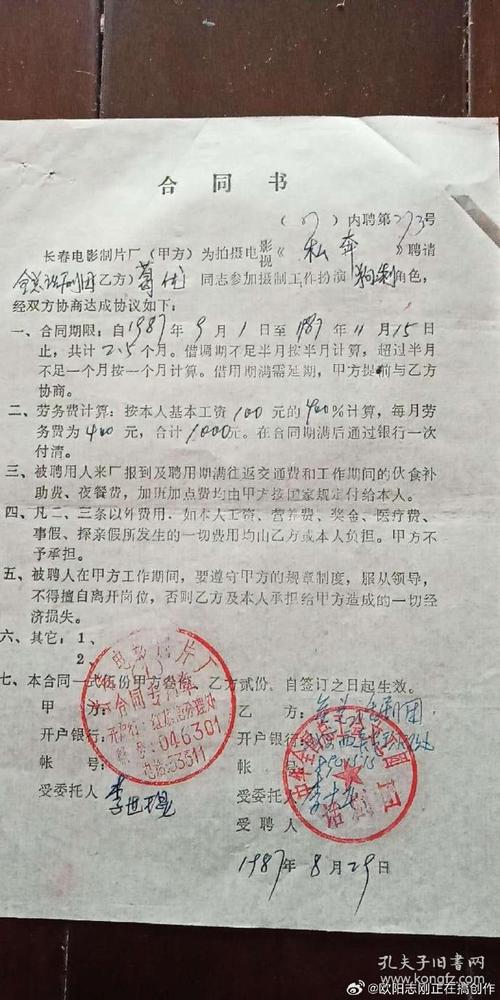 合同书
(87)内聘第273号
长春电影制片厂(甲方)为拍摄电影视《私奔》聘请
全总话剧团(乙方)葛优同志参加摄制工作扮演 角色,
经双方协商达成协议如下:
一、合同期限:自1987年9月1日至1987年11月15日
止,共计2.5个月。借调期不足半月按半月计算,超过半月
不足一个月按一个月计算。借用期满需延期,甲方提前与乙方
协商。
二、劳务费计算:按本人基本工资100元的400%计算,每月劳
务费为400元,合计1000元。在合同期满后通过银行一次
付清。
三、被聘用人来厂报到及聘用期满往返交通费和工作期间的伙食补
助费、夜餐费,加班加点费均由甲方按国家规定付给本人。
四、凡二、三条以外费用,如本人工资、营养费、奖金、医疗费、
事假、探亲假所发生的一切费用均由乙方或本人负担。甲方不
予承担。
五、被聘人在甲方工作期间,要遵守甲方的规章制度,服从领导,
不得擅自离开岗位,否则乙方及本人承担给甲方造成的一切经
济损失。
六、其它:1、
2、
七、本合同一式伍份甲方叁份,乙方贰份,自签订之日起生效。
甲方:
开户银行:
帐号:
受委托人
电影制片厂
合同专用章
046301
电话53311
乙方:全总话剧团
开户银行:
帐号:
受委托人
受聘人
话剧团
1987年8月29日
孔夫子旧书网
kongfz.com
@欧阳志刚正在搞创作